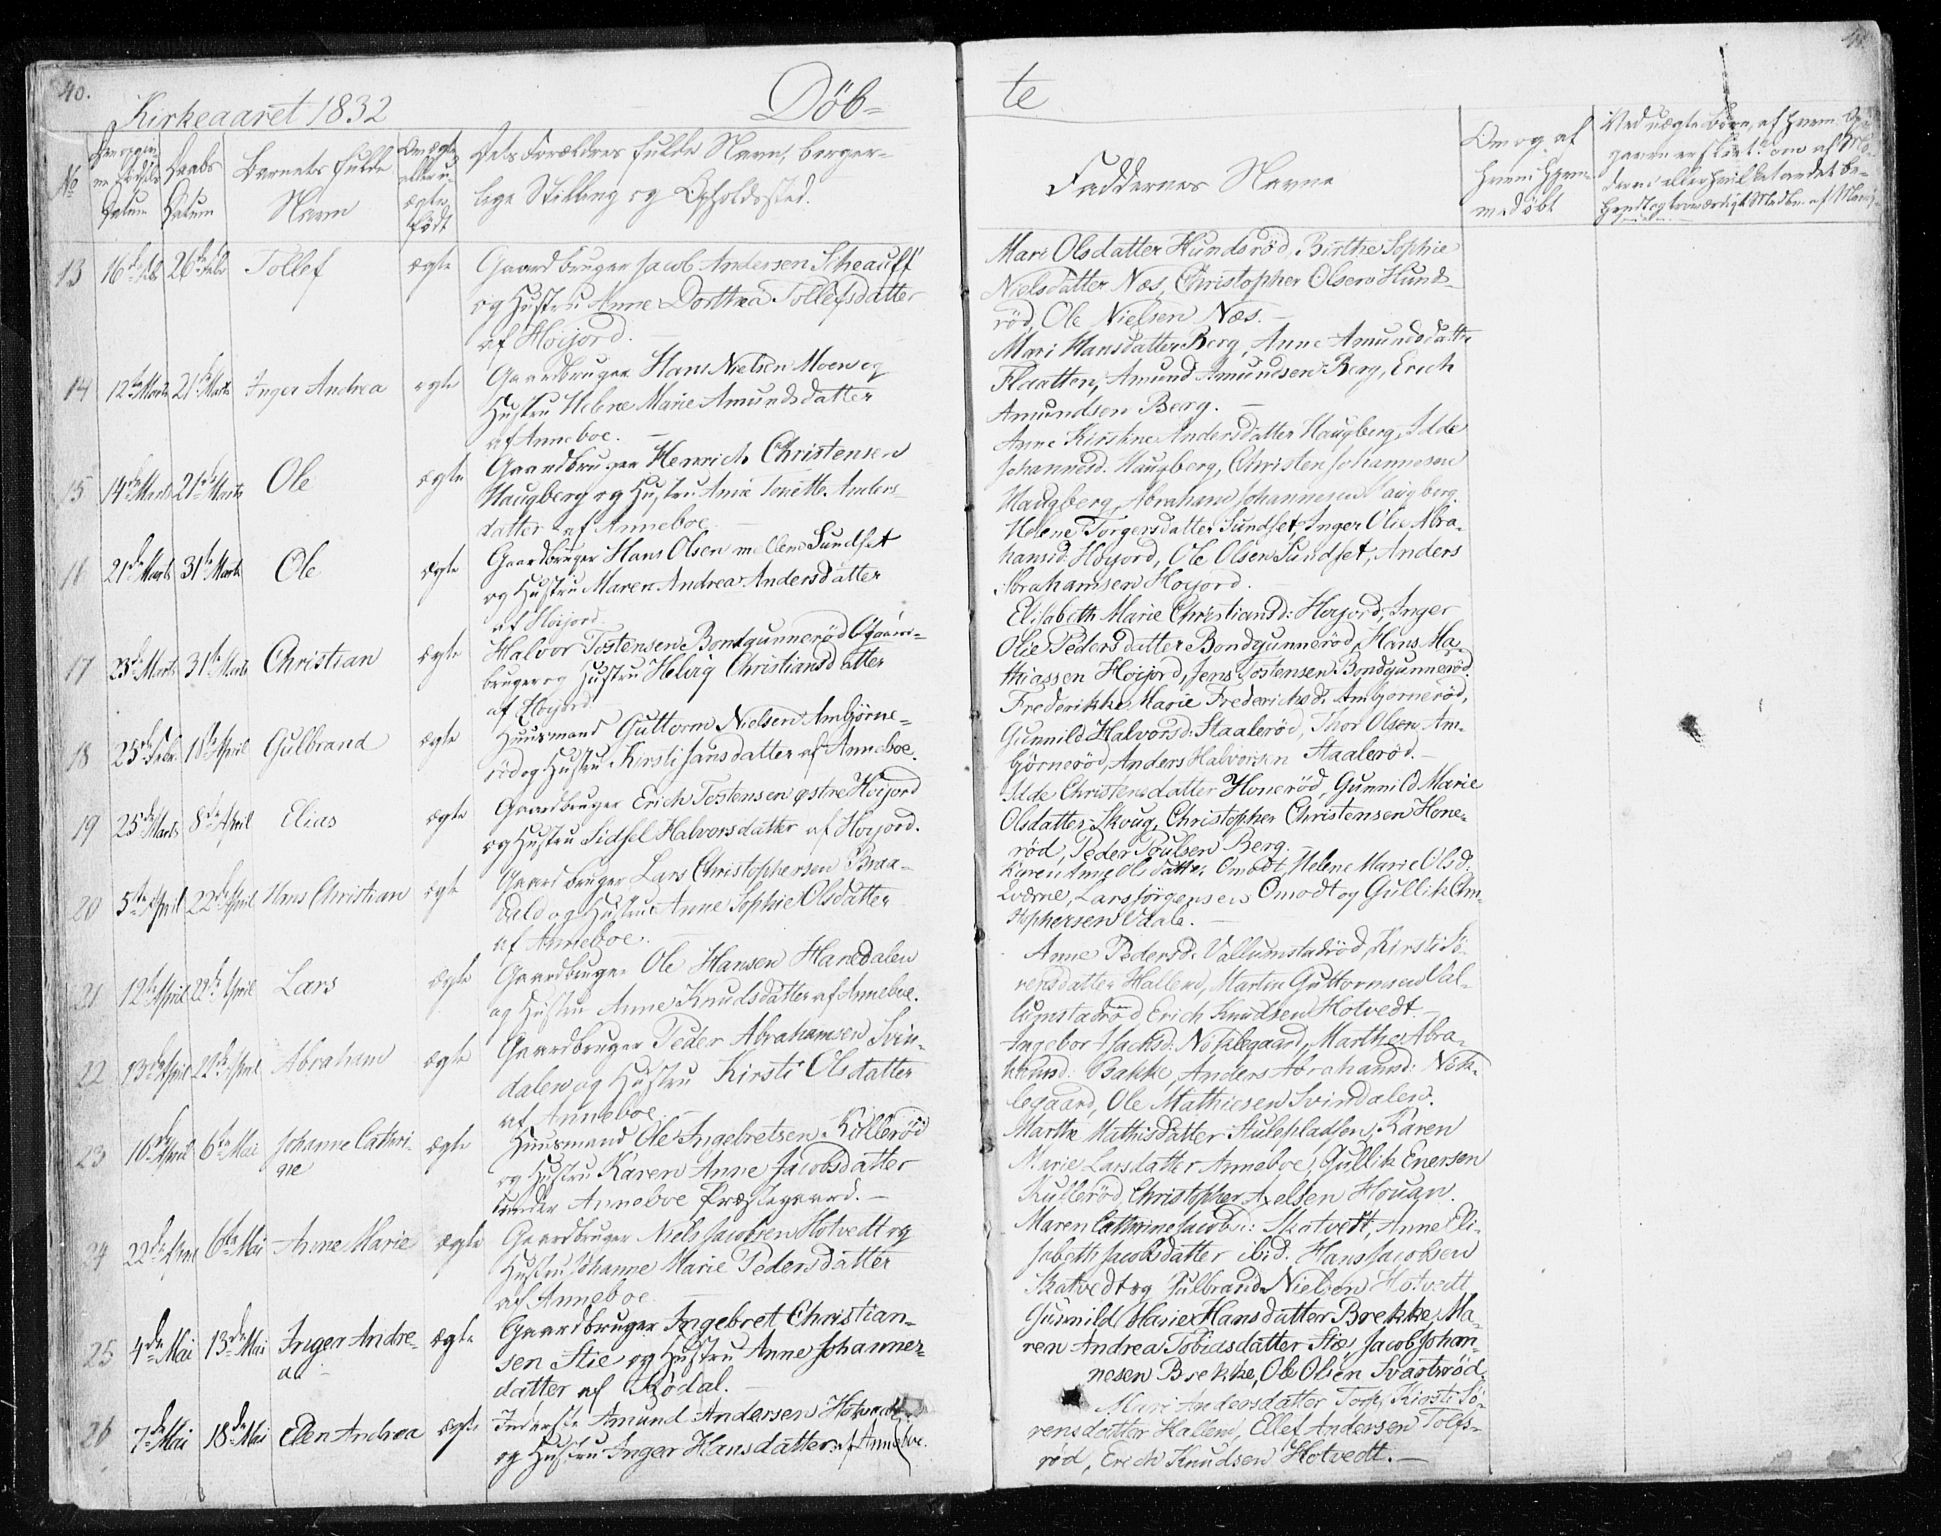 40.
Kirkeaaret 1832
Døb=
te
No
Datum
Daabs
Datum
Barnets fulde
Navn
Om ægte
eller u-
ægte
født
Dets Forældres fulde Navn, borger-
lige Stilling og Opholdssted.
Faddernes Navne
Om og af
hvem hjem-
medøbt
13 16de Feb 26de Febr Tollef ægte Gaardbruger Jacob Andersen
og Hustru Anne Dorthea Tollefsdatter
af Hoijord.
Mari Olsdatter Hundsrød, Birthe Sophie
Nielsdatter Næs, Christopher Olsen Hunds-
rød, Ole Nielsen Næs.
14 12te Marts 21de Marts Inger Andrea ægte Gaardbruger Hans Nielsen Moen og
Hustru Helene Marie Amundsdatter
af Anneboe.
Mari Hansdatter Berg, Anne Amundsdattr
Flaatten, Amund Amundsen Berg, Erich
Amundsen Berg.
15 14de Marts 21de Marts Ole ægte Gaardbruger Henrich Christensen
Haugberg og Hustru Anne Tonette Anders-
datter af Anneboe.
Anne Kirstine Andersdatter Haugberg, Idde
Johannesd. Haugberg, Christen Johannesen
Haugberg, Abraham Johannesen Haugberg.
16 21de Marts 31te Marts Ole ægte Gaardbruger Hans Olsen mellem Sundset
og Hustru Maren Andrea Andersdatter
af Hoijord.
Helene Torgersdatter Sundset, Inger Olie Abra-
hamsd: Hoijord, Ole Olsen Sundset, Anders
Abrahamsen Hoijord.
17 23de Marts 31te Marts Christian ægte Halvor Tostensen Bondgunnerød Gaard-
bruger og Hustru Helvig Christiansdatter
af Hoijord
Elisabeth Marie Christiansd: Hoijord, Inger
Olie Pedersdatter Bondgunnerød, Hans Ma-
thiassen Hoijord, Jens Tostensen Bondgunnerød.
18 25de Febr. April Gulbrand ægte Huusmand Guttorm Nielsen Ambjørne-
rød og Hustru Kirsti Jansdatter af Anneboe.
Frederikke Marie Frederichsd. Ambjørnerød,
Gunnild Halvorsd. Staalerød, Thor Olsen Am-
bjørnerød, Anders Halvorsen Staalerød.
19 25de Marts 8de April Elias ægte Gaardbruger Erich Tostensen østre Hoijord
og Hustru Sidsel Halvorsdatter af Hoijord.
Idde Christensdatter Honerød, Gunnild Marie
Olsdatter Skoug, Christopher Christensen Hone-
rød, Peder Poulsen Berg.
20 5te April 22de April Hans Christian ægte Gaardbruger Lars Christophersen Braa-
og Hustru Anne Sophie Olsdatter
af Anneboe.
Karen Anne Olsdatter Omodt, Helene Marie Olsd.
Qværne, Lars Jørgensen Omodt og Gullik
stophersen Odale.
21 12te April 22de April Lars ægte Gaardbruger Ole Hansen Hanedalen
og Hustru Anne Knudsdatter af Anneboe.
Anne Pedersd. Vallumstadrød, Kirsti Sö-
rensdatter Hallen, Martin Guttormsen Val-
lumstadrød Erich Knudsen Hotvedt.
22 13de April 22de April Abraham ægte Gaardbruger Peder Abrahamsen Svin-
dalen og Hustru Kirsti Olsdatter
af Anneboe.
Ingebor Isachsd. Nøklegaard, Marthe Abra-
hamsd: Bakke, Anders Abrahamsd: Nøk-
legaard, Ole Mathiesen Svindalen.
23 16de April 6te Mai Johanne Cathri-
ne ægte Huusmand Ole Ingebretsen Kullerød
og Hustru Karen Anne Jacobsdatter
under Anneboe Præstegaard.
Marthe Mathisdatter Stulepladsen, Karen
Marie Larsdatter Anneboe, Gullik Enersen
Kullerød, Christopher Axelsen Houan.
24 22de April 6te Mai Anne Marie ægte Gaardbruger Niels Jacobsen Hotvedt og
Hustru Johanne Marie Pedersdatter
af Anneboe
Maren Cathrine Jacobsd: Skatvedt, Anne Eli-
sabeth Jacobsdatter ibid. Hans Jacobsen
Skatvedt og Gulbrand Nielsen Hotvedt
25 4de Mai 13de Mai Inger Andre-
a ægte Gaardbruger Ingebret Christian-
sen Stie og Hustru Anne Johannes-
datter af Kødal.
Gunnild Marie Hansdatter Brekke, Ma-
ren Andrea Tobiasdatter Stie, Jacob Johan-
nesen Brekke, Ole Olsen Svartsrød.
26 7de Mai 18de Mai Ellen Andrea ægte Inderste Amund Andersen Hotvedt
og Hustru Inger Hansdatter af Anneboe.
Mari Andersdatter Torp, Kirsti Sö-
rensdatter Hallen, Ellef Andersen Tolfs-
rød, Erich Knudsen Hotvedt.